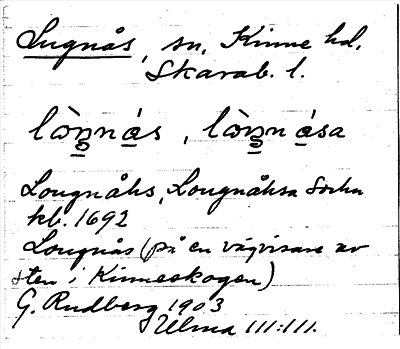 Lugnås, sn, Kinne hd.
Skarab. l.
lòŋnás, lòŋnása
Lougnåhs, Lougnåhsa Sochn
kb. 1692
Lougnås (på en vägvisare av
sten i Kinneskogen)
G. Rudberg 1903
Ulma 111:111.